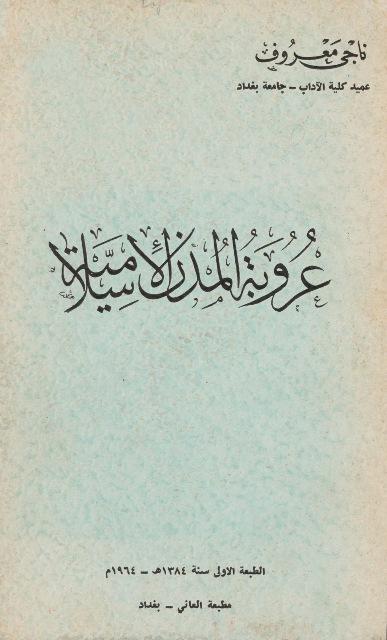 ناجي معروف
عميد كلية الآداب - جامعة بغداد
عروبة المدن الإسلامية
الطبعة الاولى سنة ١٣٨٤هـ - ١٩٦٤م
مطبعة العاني - بغداد